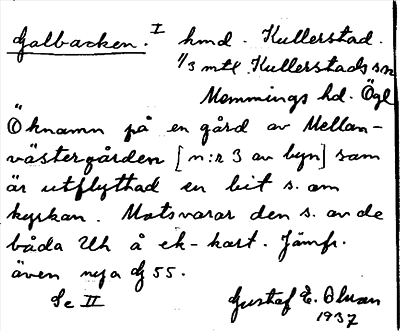 Galbacken. I hmd. Kullerstad.
1/3 mtl Kullerstads sn
Memmings hd. Ögl
Öknamn på en gård av Mellan-
västergården [n:r 3 av byn] som
är utflyttad en bit s. om
kyrkan. Motsvarar den s. av de
båda Uh å ek-kart. Jämfr.
även nya G 55.
Se II
Gustaf E. Olsson
1937